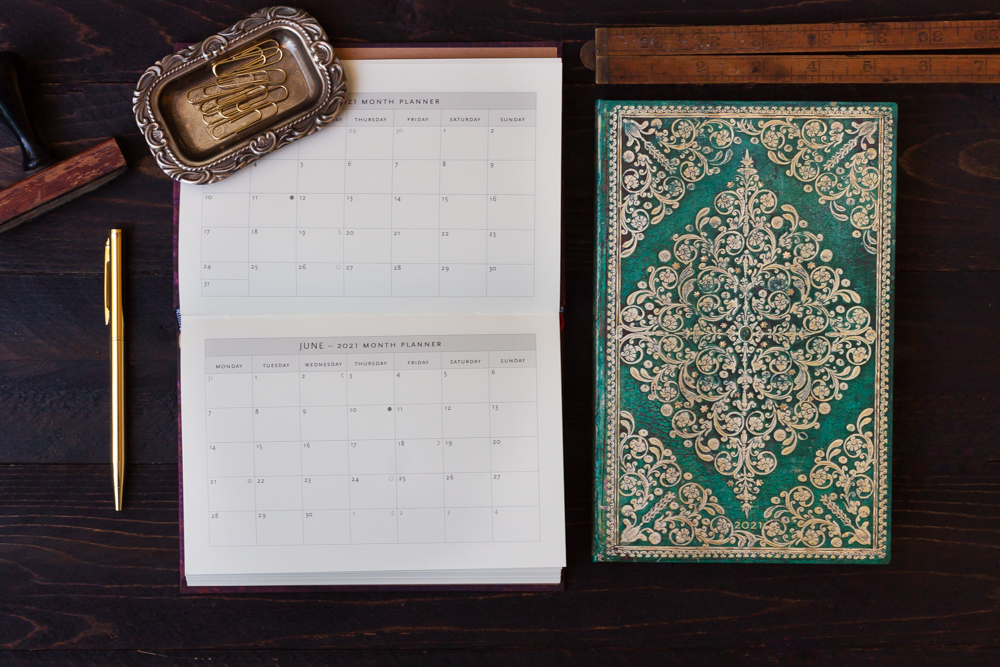 2021 MONTH PLANNER
THURSDAY FRIDAY SATURDAY SUNDAY
29 30 1 2
4 5 6 7 8 9
10 11 12 13 14 15 16
17 18 19 20 21 22 23
24 25 26 27 28 29 30
31
JUNE – 2021 MONTH PLANNER
MONDAY TUESDAY WEDNESDAY THURSDAY FRIDAY SATURDAY SUNDAY
31 1 2 3 4 5 6
7 8 9 10 11 12 13
14 15 16 17 18 19 20
21 22 23 24 25 26 27
28 29 30 1 2 3 4
2021